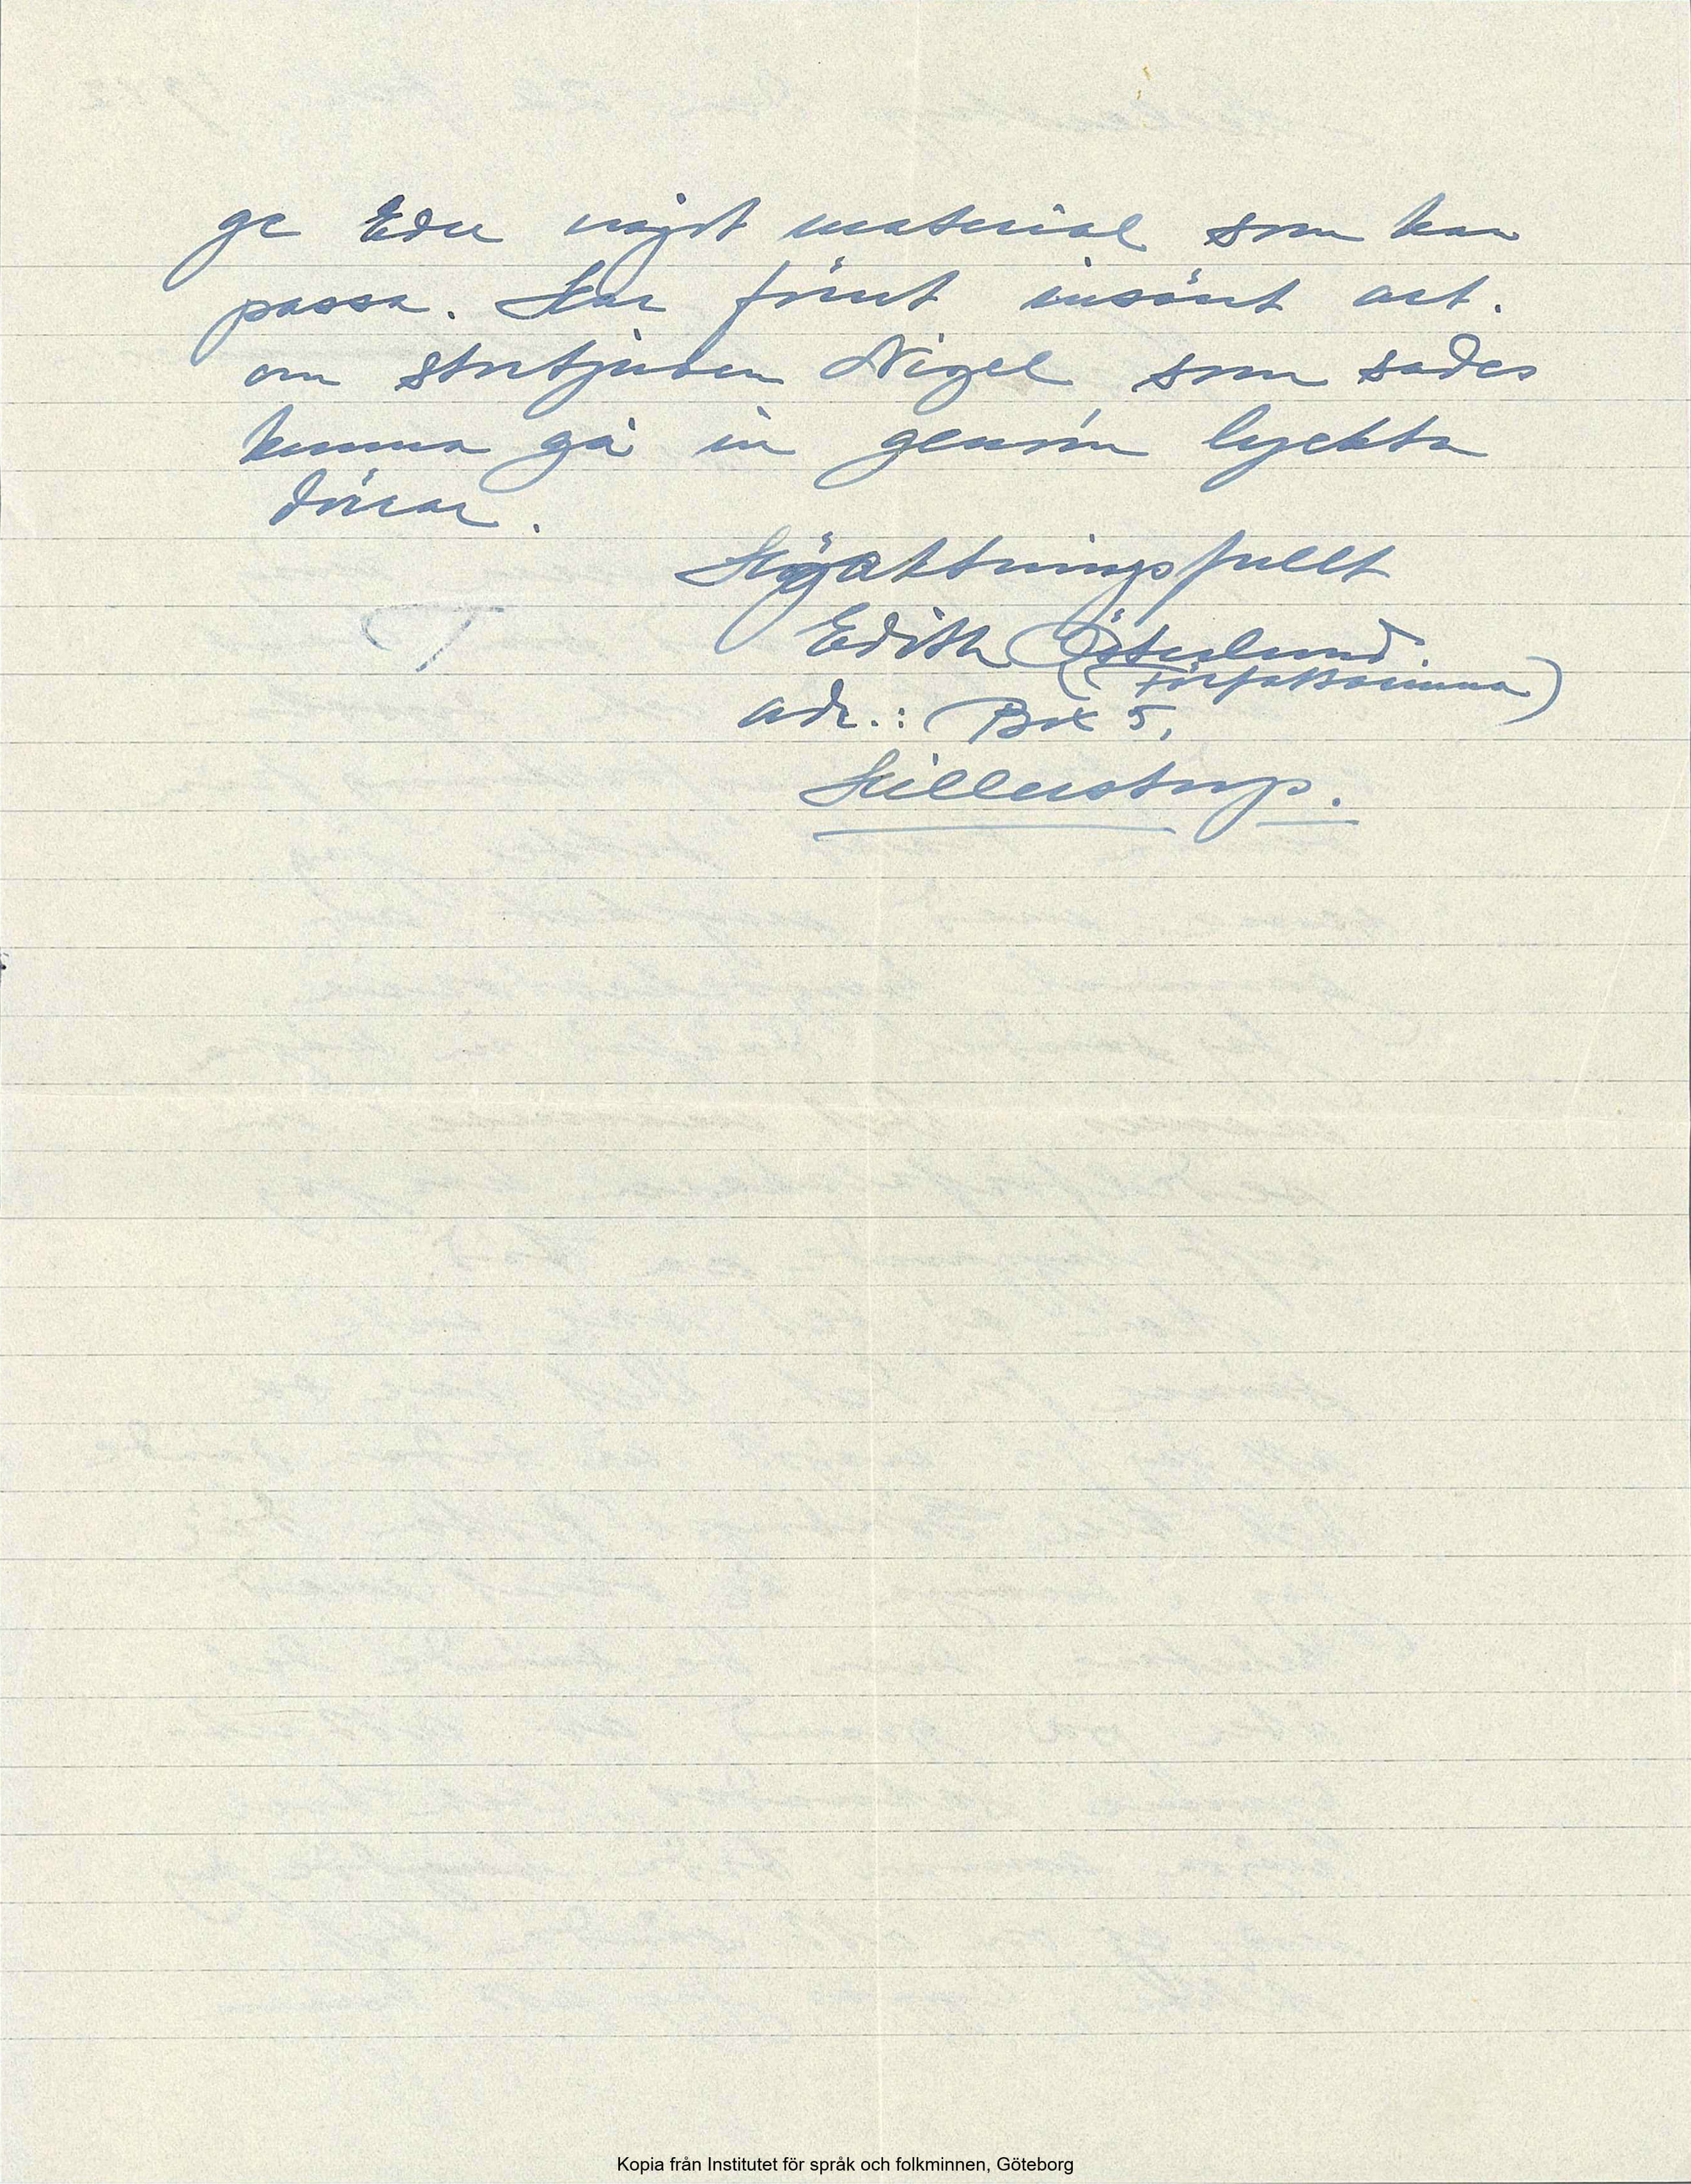 ge Eder något material som kan
passa. Har förut insänt art.
om stortjuven Nigel, som sades
kunna gå in genom lyckta
dörrar.
Högaktningsfullt
Edith Österlund.
(Författarinna)
adr.: Box 5,
Hillerstorp.
Kopia från Institutet för språk och folkminnen, Göteborg